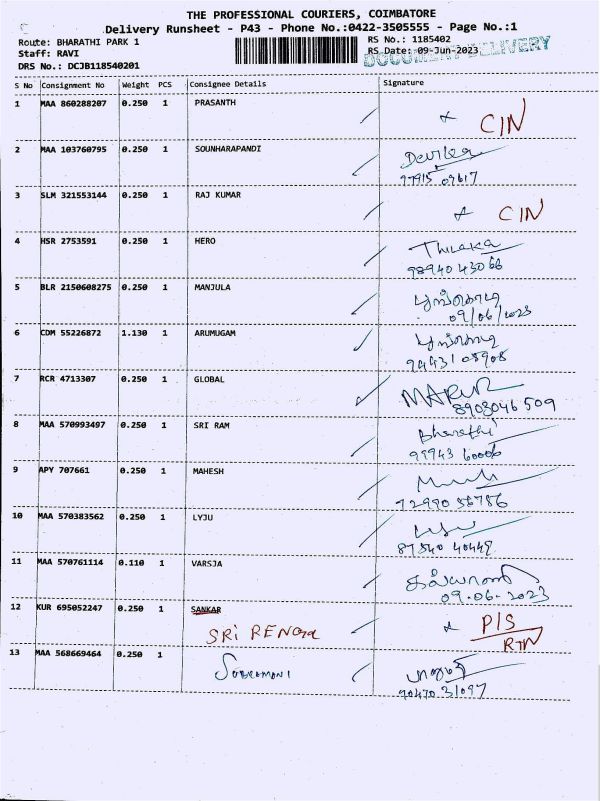 THE PROFESSIONAL COURIERS, COIMBATORE
Delivery Runsheet - P43 - Phone No.:0422-3505555 - Page No.:1
Route: BHARATHI PARK 1
RS No.: 1185402
Staff: RAVI
RS Date: 09-Jun-2023
DOCUMENT DELIVERY
DRS No.: DCJB118540201
S No Consignment No Weight PCS Consignee Details Signature
1 MAA 860288207 0.250 1 PRASANTH
CIN
2 MAA 103760795 0.250 1 SOUNHARAPANDI
Devika
3 SLM 321553144 0.250 1 RAJ KUMAR
CIN
4 HSR 2753591 0.250 1 HERO
Thilaka
98940 43066
5 BLR 2150608275 0.250 1 MANJULA
பூங்கொடி
09/06/2023
6 CDM 55226872 1.130 1 ARUMUGAM
பூங்கொடி
94431 08908
7 RCR 4713307 0.250 1 GLOBAL
8903046 509
8 MAA 570993497 0.250 1 SRI RAM
Bharathi
99943 60006
9 APY 707661 0.250 1 MAHESH
72990 56786
10 MAA 570383562 0.250 1 LYJU
87540 40449
11 MAA 570761114 0.110 1 VARSJA
09-06-2023
12 KUR 695052247 0.250 1 SANKAR
SRI RENGA
P/S
RTN
13 MAA 568669464 0.250 1
SUBRAMANI
90470 31097